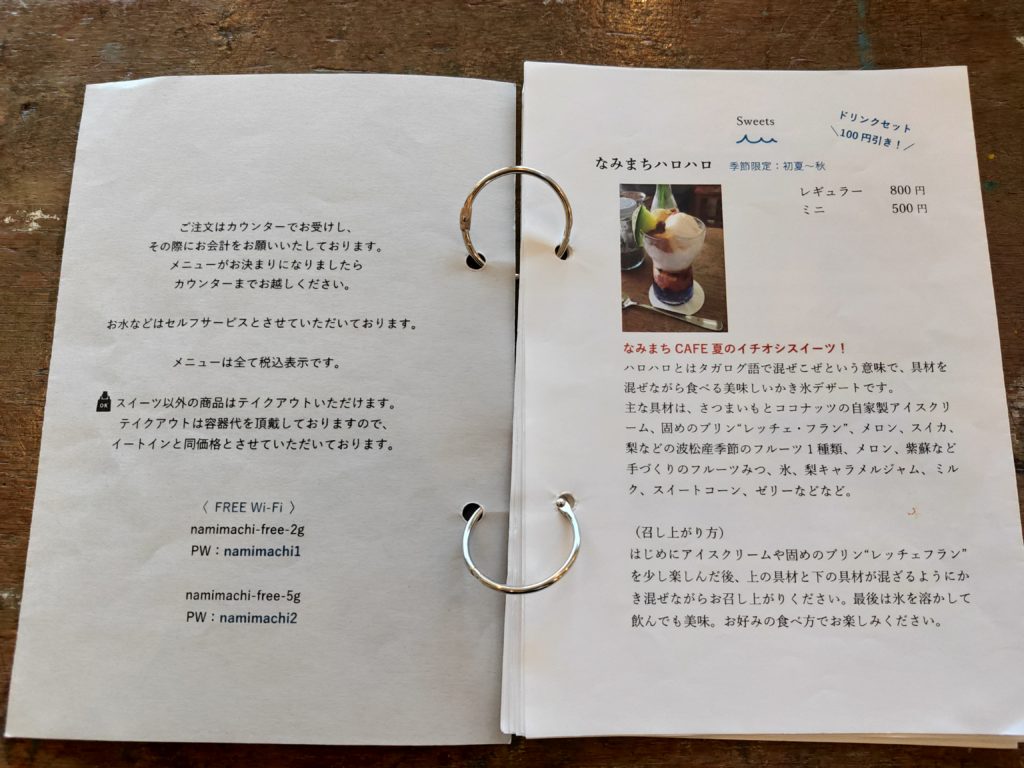 ご注文はカウンターでお受けし、
その際にお会計をお願いいたしております。
メニューがお決まりになりましたら
カウンターまでお越しください。
お水などはセルフサービスとさせていただいております。
メニューは全て税込表示です。
OK スイーツ以外の商品はテイクアウトいただけます。
テイクアウトは容器代を頂戴しておりますので、
イートインと同価格とさせていただいております。
〈 FREE Wi-Fi 〉
namimachi-free-2g
PW：namimachi1
namimachi-free-5g
PW：namimachi2
Sweets
ドリンクセット
＼100円引き！／
なみまちハロハロ 季節限定：初夏〜秋
レギュラー 800円
ミニ 500円
なみまちCAFE夏のイチオシスイーツ！
ハロハロとはタガログ語で混ぜこぜという意味で、具材を
混ぜながら食べる美味しいかき氷デザートです。
主な具材は、さつまいもとココナッツの自家製アイスクリ
ーム、固めのプリン“レッチェ・フラン”、メロン、スイカ、
梨などの波松産季節のフルーツ1種類、メロン、紫蘇など
手づくりのフルーツみつ、氷、梨キャラメルジャム、ミル
ク、スイートコーン、ゼリーなどなど。
（召し上がり方）
はじめにアイスクリームや固めのプリン“レッチェフラン”
を少し楽しんだ後、上の具材と下の具材が混ざるようにか
き混ぜながらお召し上がりください。最後は氷を溶かして
飲んでも美味。お好みの食べ方でお楽しみください。